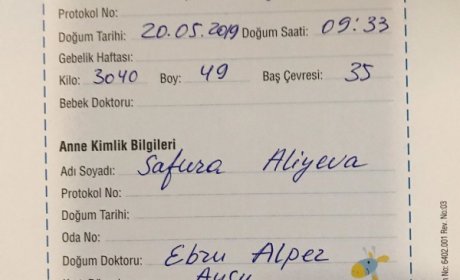 Protokol No:
Doğum Tarihi: 20.05.2019 Doğum Saati: 09:33
Gebelik Haftası:
Kilo: 3040 Boy: 49 Baş Çevresi: 35
Bebek Doktoru:
Anne Kimlik Bilgileri
Adı Soyadı: Safura Aliyeva
Protokol No:
Doğum Tarihi:
Oda No:
Doğum Doktoru: Ebru Alper
No: 6402.001 Rev. No:03